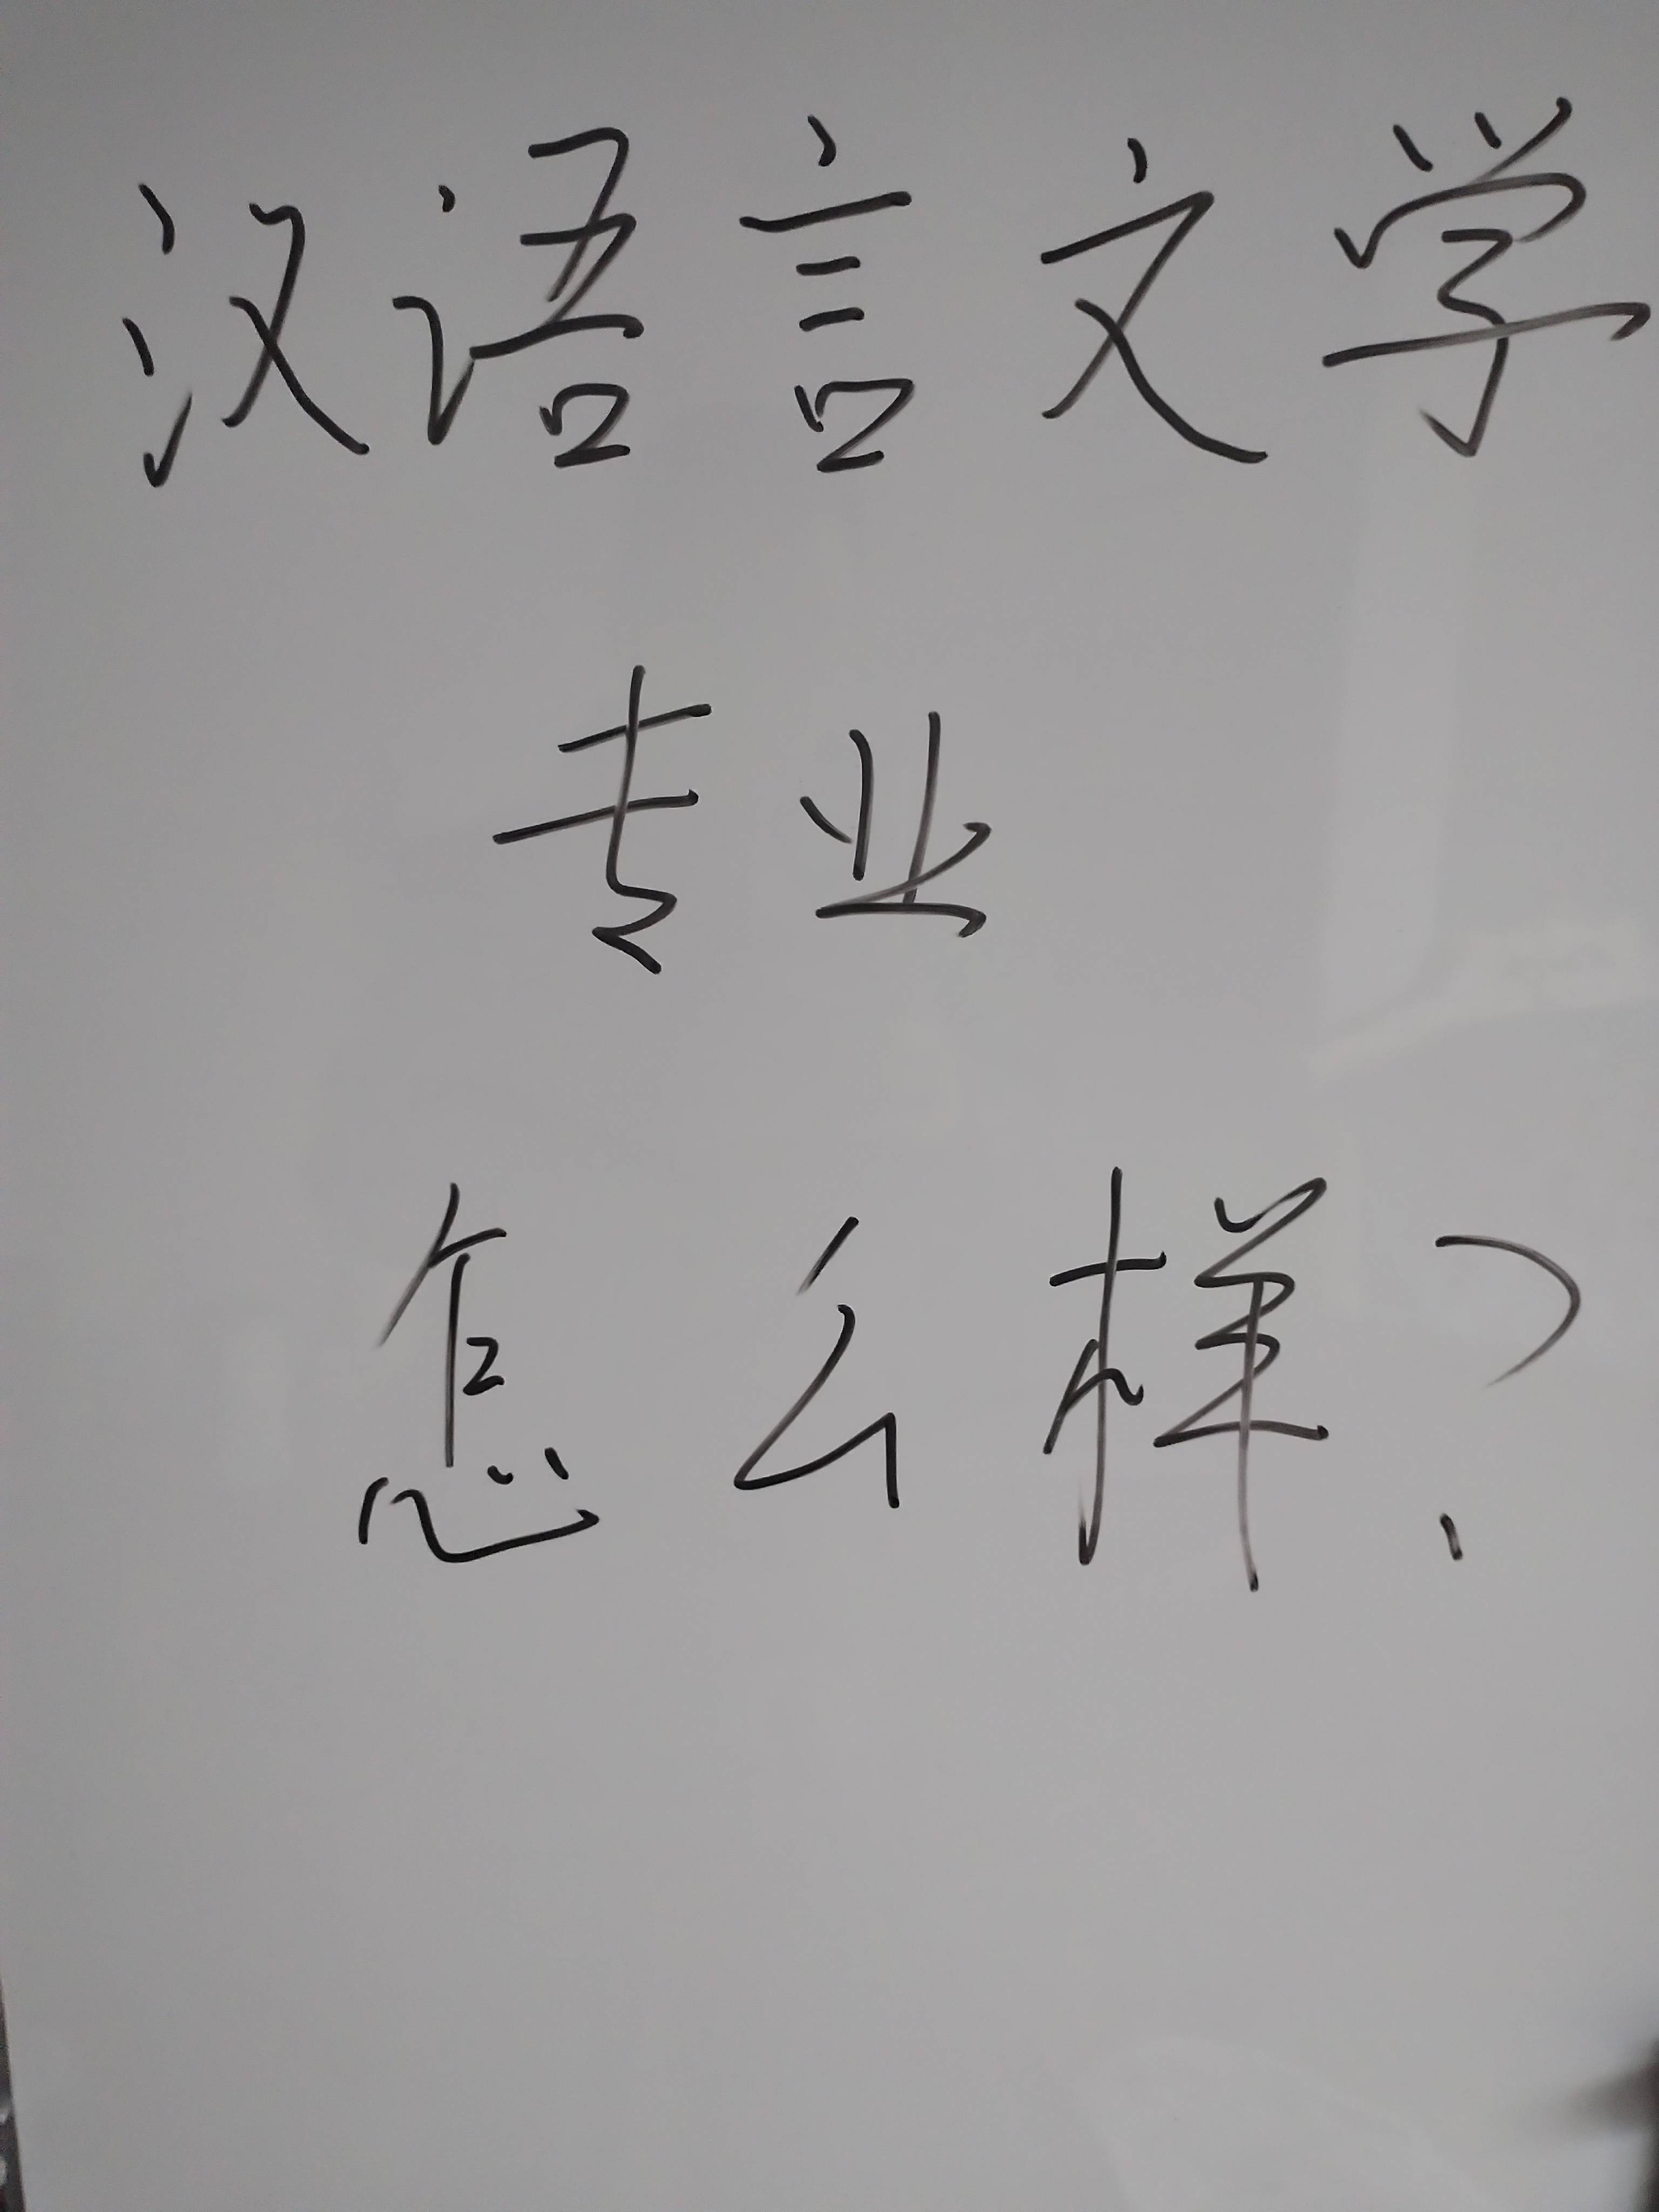 汉语言文学
专业
怎么样?